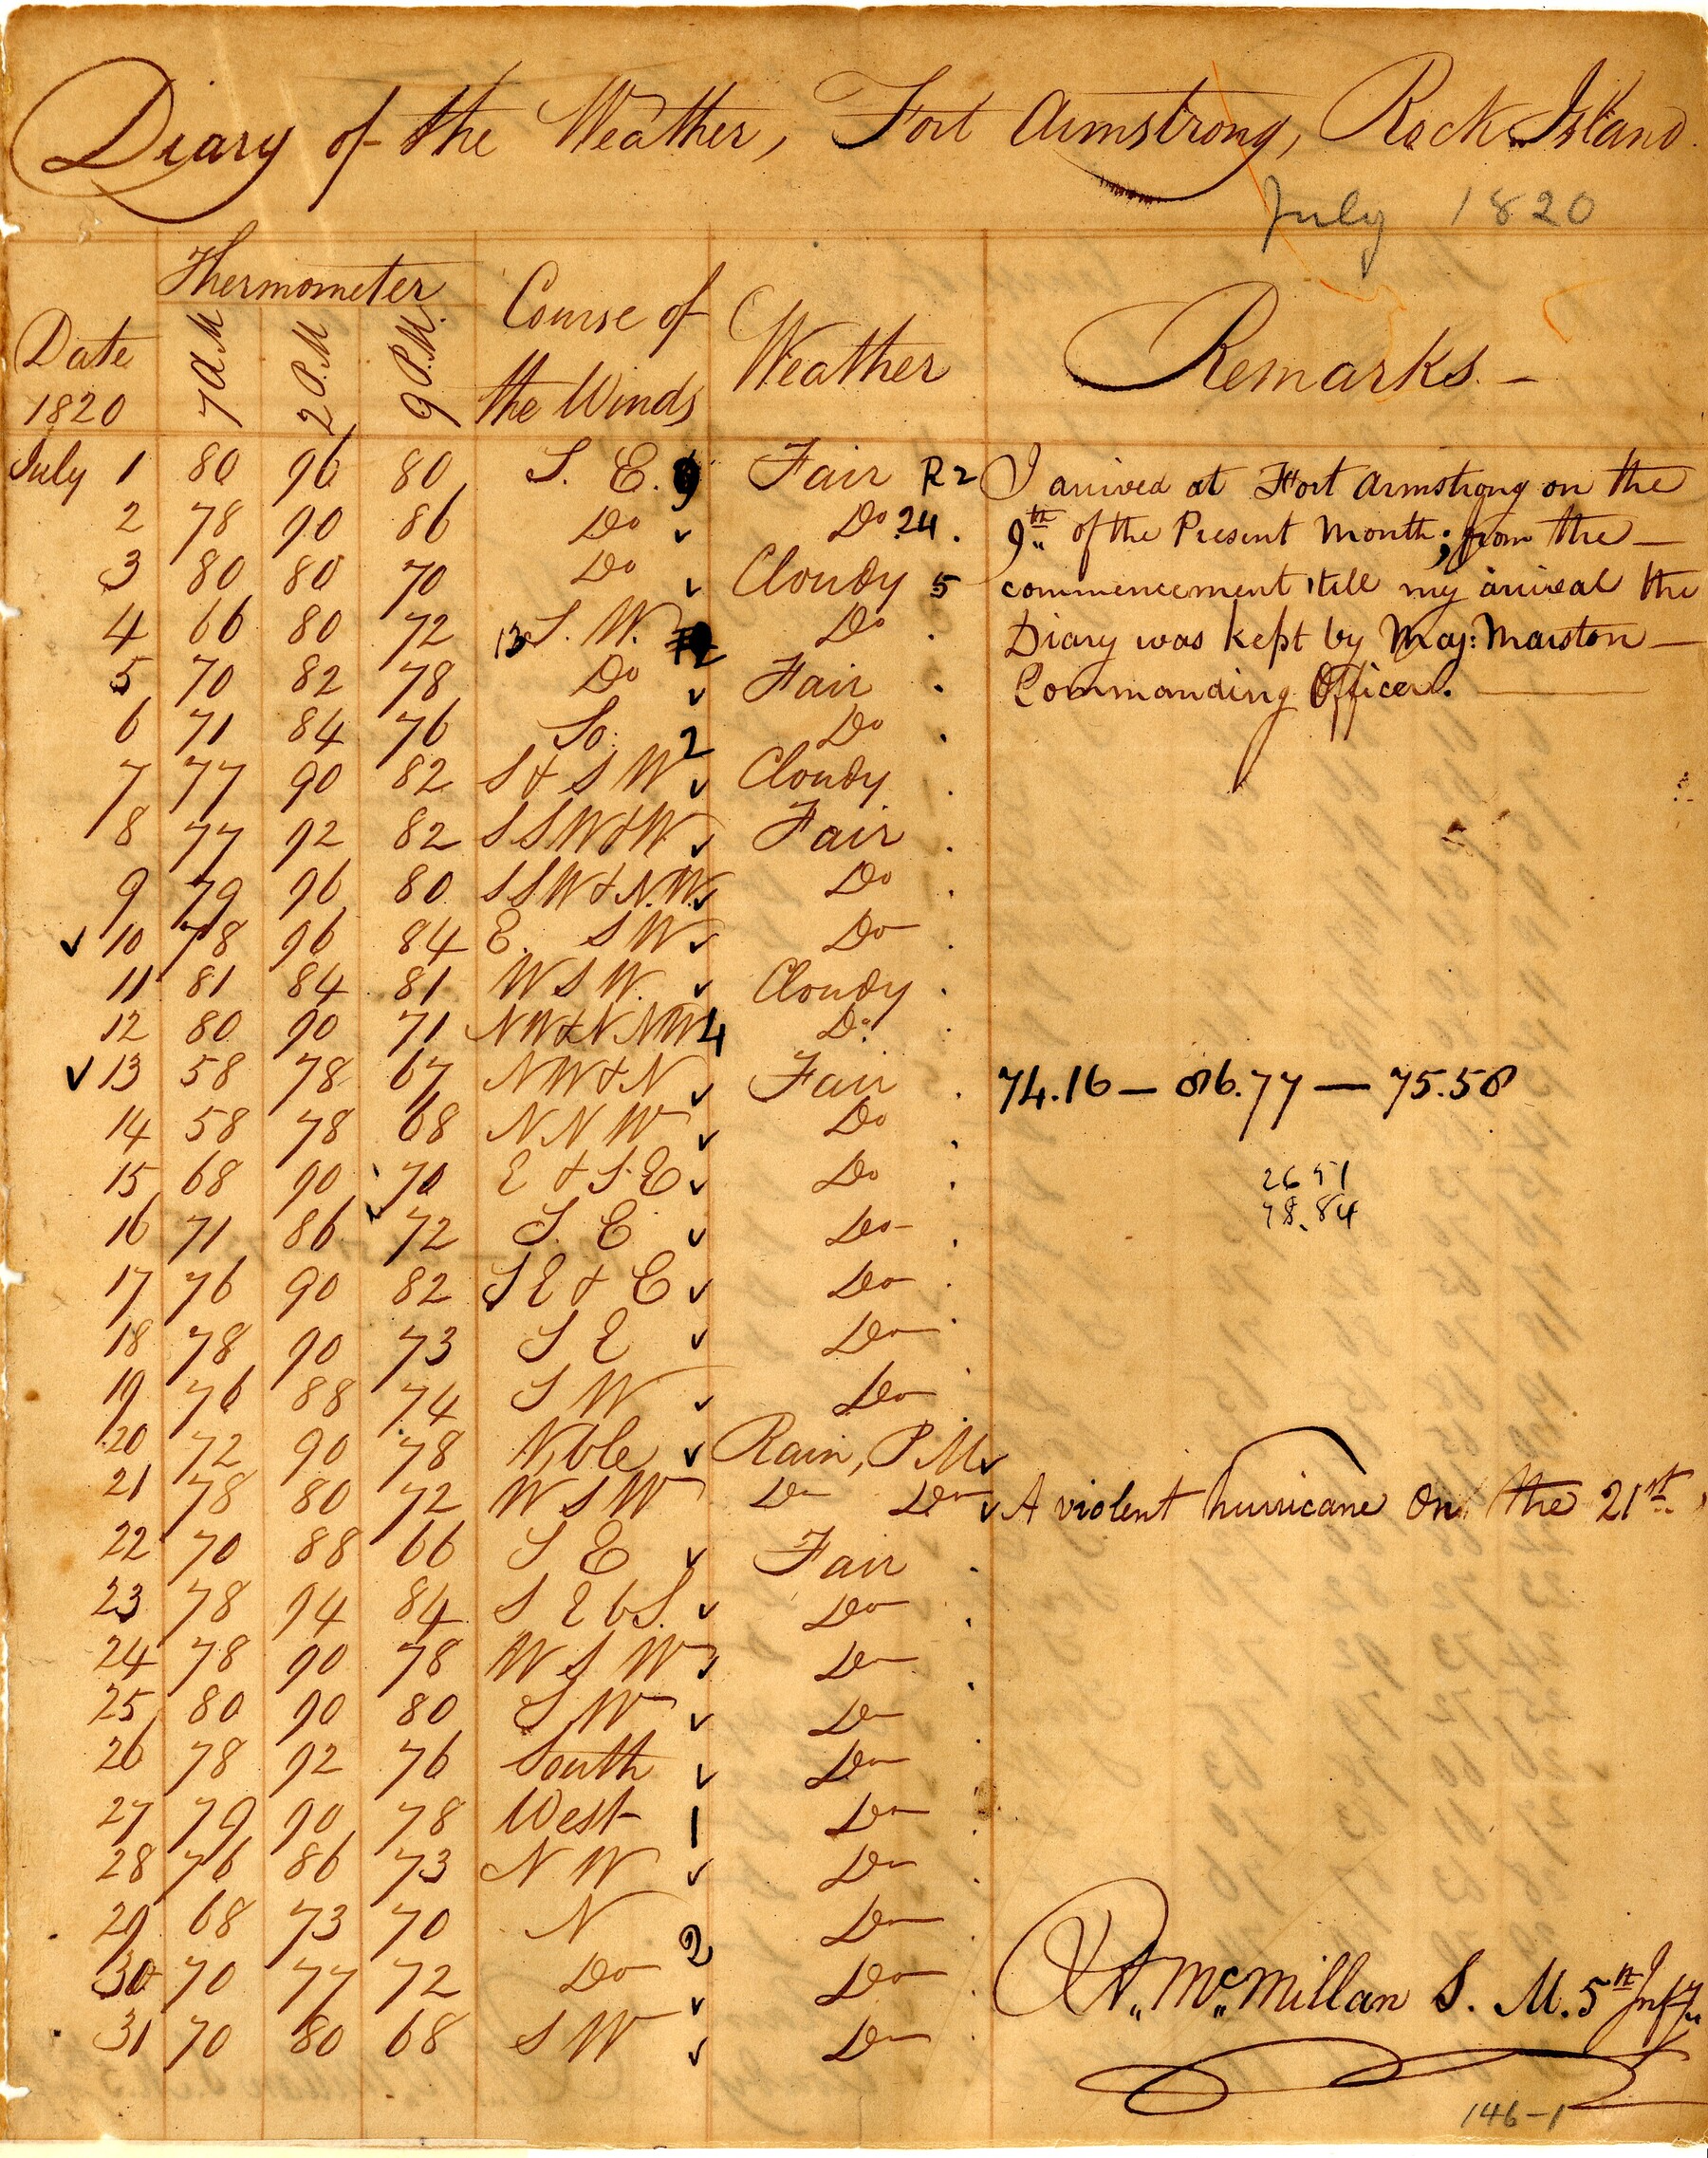 Diary of the Weather, Fort Armstrong, Rock Island.
July 1820
Date 1820 Thermometer 7 A.M 2 P.M 9 P.M. Course of the Winds Weather Remarks.
July 1 80 96 80 S. E. 9 Fair R 2 I arrived at Fort Armstrong on the
2 78 90 86 Do Do 24. 9th of the Present Month; from the
3 80 80 70 Do Cloudy 5 commencement till my arival the
4 66 80 72 13 S. W. 12 Do Diary was kept by Maj: Marston
5 70 82 78 Do Fair Commanding Officer.
6 71 84 76 So. 2 Do
7 77 90 82 S & S W Cloudy
8 77 92 82 S S W & W Fair
9 79 96 80 S S W & N.W. Do
10 78 96 84 E. S W Do
11 81 84 81 W S W. Cloudy
12 80 90 71 N W & N N W 4 Do
13 58 78 67 N W & N Fair 74.16 — 86.77 — 75.58
14 58 78 68 N N W Do
15 68 90 70 E & S.E Do 26 91
16 71 86 72 S. E Do 78.84
17 76 90 82 S E & E Do
18 78 90 73 S E Do
19 76 88 74 S W Do
20 72 90 78 Rain, P.M
21 78 80 72 W S W Do Do A violent hurricane on the 21st.
22 70 88 66 S E Fair
23 78 94 84 S E b S. Do
24 78 90 78 W S W Do
25 80 90 80 S W Do
26 78 92 76 South Do
27 79 90 78 West 1 Do
28 76 86 73 N W Do
29 68 73 70 N 2 Do
30 70 77 72 Do Do McMillan S. M. 5th Infy.
31 70 80 68 S W Do
146-1